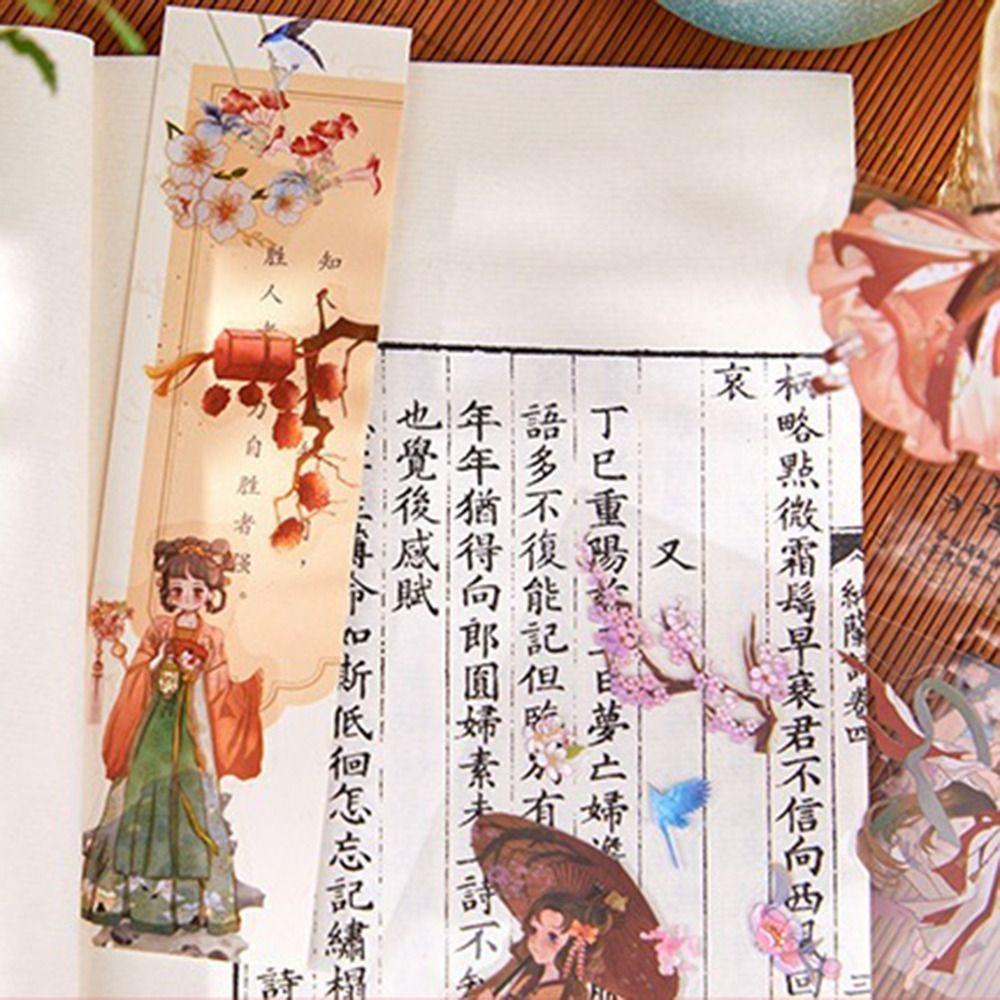 納蘭詞卷四 三
略點微霜鬂早衰君不信向西風回
哀
又
丁巳重陽 日夢亡婦
語多不復能記但臨別有
年年猶得向郎圓婦素未 詩不
也覺後感賦
薄命如斯低徊怎忘記繡榻
詩
知
胜人者 力自胜者强。